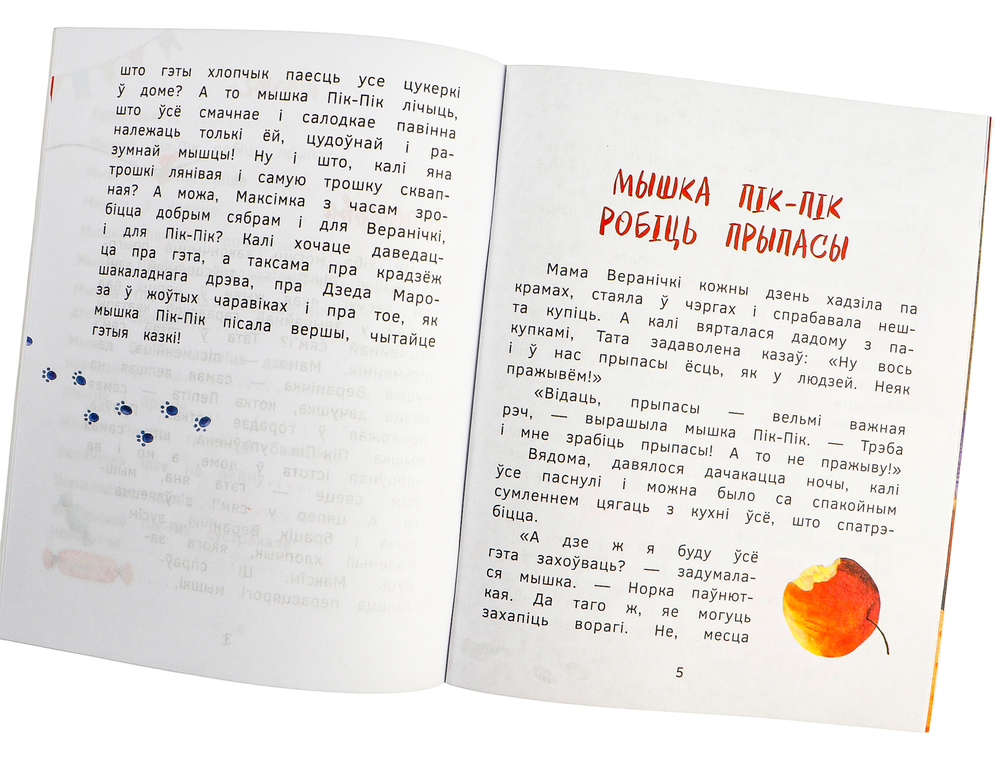 што гэты хлопчык паесць усе цукеркі
ў доме? А то мышка Пік-Пік лічыць,
што ўсё смачнае і салодкае павінна
належаць толькі ёй, цудоўнай і ра-
зумнай мышцы! Ну і што, калі яна
трошкі лянівая і самую трошку сквап-
ная? А можа, Максімка з часам зро-
біцца добрым сябрам і для Веранічкі,
і для Пік-Пік? Калі хочаце даведац-
ца пра гэта, а таксама пра крадзёж
шакаладнага дрэва, пра Дзеда Маро-
за ў жоўтых чаравіках і пра тое, як
мышка Пік-Пік пісала вершы, чытайце
гэтыя казкі!
МЫШКА ПІК-ПІК
РОБІЦЬ ПРЫПАСЫ
Мама Веранічкі кожны дзень хадзіла па
крамах, стаяла ў чэргах і спрабавала неш-
та купіць. А калі вярталася дадому з па-
купкамі, Тата задаволена казаў: «Ну вось
і ў нас прыпасы ёсць, як у людзей. Неяк
пражывём!»
«Відаць, прыпасы — вельмі важная
рэч, — вырашыла мышка Пік-Пік. — Трэба
і мне зрабіць прыпасы! А то не пражыву!»
Вядома, давялося дачакацца ночы, калі
ўсе паснулі і можна было са спакойным
сумленнем цягаць з кухні ўсё, што спатрэ-
біцца.
«А дзе ж я буду ўсё
гэта захоўваць? — задумала-
ся мышка. — Норка паўнют-
кая. Да таго ж, яе могуць
захапіць ворагі. Не, месца
5